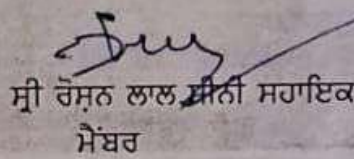 ਸ੍ਰੀ ਰੋਸ਼ਨ ਲਾਲ ਸੈਨੀ ਸਹਾਇਕ
ਮੈਂਬਰ